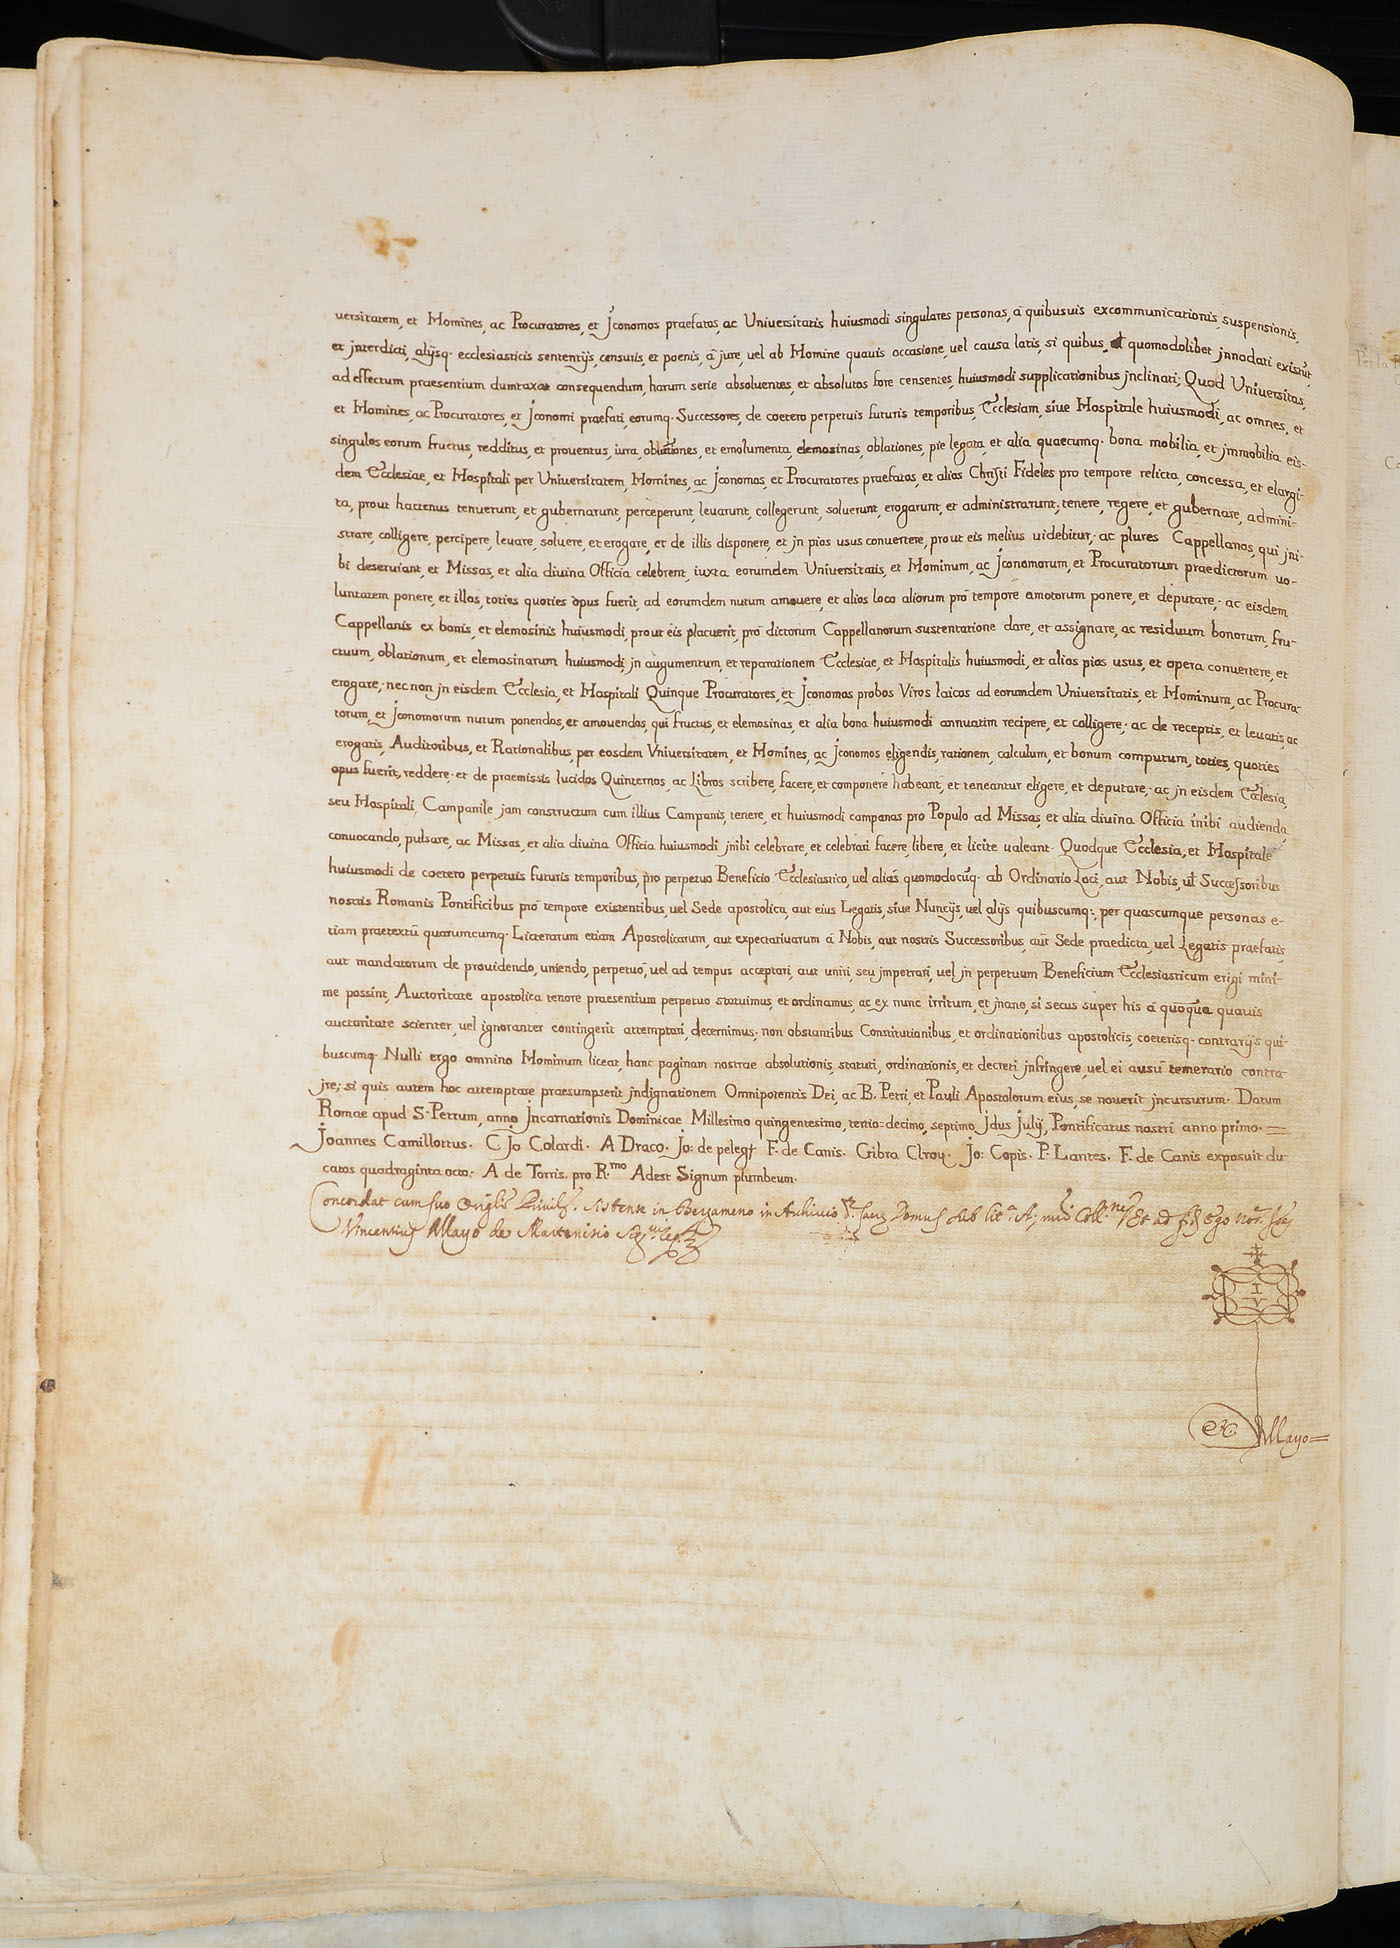 uersitatem, et Homines, ac Procuratores, et Jconomos praefatos, ac Uniuersitatis huiusmodi singulares personas, à quibusuis excommunicationis, suspensionis,
et jnterdicti, alijsq. ecclesiasticis sententijs, censuris, et poenis, à jure, uel ab Homine quauis occasione, uel causa latis, si quibus, quomodolibet jnnodati existũt,
ad effectum praesentium dumtaxat consequendum, harum serie absoluentes, et absolutos fore censentes, huiusmodi supplicationibus jnclinati; Quod Uniuersitas,
et Homines, ac Procuratores, et Jconomi praefati, eorumq. Successores, de coetero perpetuis futuris temporibus, Ecclesiam, siue Hospitale huiusmodi, ac omnes, et
singulos eorum fructus, redditus, et prouentus, iura, oblationes, et emolumenta, elemosinas, oblationes, pie legata, et alia quaecumq. bona mobilia, et jmmobilia eis-
dem Ecclesiae, et Hospitali per Uniuersitatem, Homines, ac Jconomos, et Procuratores praefatos, et alios Christi Fideles pro tempore relicta, concessa, et elargi-
ta, prout hactenus tenuerunt, et gubernarunt, perceperunt, leuarunt, collegerunt, soluerunt, erogarunt, et administrarunt; tenere, regere, et gubernare, admini-
strare, colligere, percipere, leuare, soluere, et erogare, et de illis disponere, et jn pios usus conuertere, prout eis melius uidebitur; ac plures Cappellanos, qui jni-
bi deseruiant, et Missas, et alia diuina Officia celebrent, iuxta eorumdem Uniuersitatis, et Hominum, ac Jconomorum, et Procuratorum praedictorum uo-
luntatem ponere, et illos, toties quoties opus fuerit, ad eorumdem nutum amouere, et alios loco aliorum prò tempore amotorum ponere, et deputare; ac eisdem
Cappellanis ex bonis, et elemosinis huiusmodi, prout eis placuerit, prò dictorum Cappellanorum sustentatione dare, et assignare, ac residuum bonorum, fru-
ctuum, oblationum, et elemosinarum huiusmodi, jn augumentum, et reparationem Ecclesiae, et Hospitalis huiusmodi, et alios pios usus, et opera conuertere, et
erogare; nec non jn eisdem Ecclesia, et Hospitali Quinque Procuratores, et Jconomos probos Viros laicos ad eorumdem Uniuersitatis, et Hominum, ac Procura-
torum, et Jconomorum nutum ponendos, et amouendos, qui fructus, et elemosinas, et alia bona huiusmodi annuatim recipere, et colligere; ac de receptis, et leuatis, ac
erogatis, Auditoribus, et Rationalibus, per eosdem Vniuersitatem, et Homines, ac Jconomos eligendis, rationem, calculum, et bonum computum, toties, quoties
opus fuerit, reddere; et de praemissis lucidos Quinternos, ac Libros scribere, facere, et componere habeant, et teneantur eligere, et deputare; ac jn eisdem Ecclesia,
seu Hospitali, Campanile jam constructum cum illius Campanis, tenere, et huiusmodi campanas pro Populo ad Missas, et alia diuina Officia inibi audienda
conuocando, pulsare, ac Missas, et alia diuina Officia huiusmodi jnibi celebrare, et celebrari facere, libere, et licite ualeant. Quodque Ecclesia, et Hospitale
huiusmodi de coetero perpetuis futuris temporibus, pro perpetuo Beneficio Ecclesiastico, uel aliàs quomodocũq. ab Ordinario Loci, aut Nobis, ul Successoribus
nostris Romanis Pontificibus prò tempore existentibus, uel Sede apostolica, aut eius Legatis, siue Nuncijs, uel alijs quibuscumq., per quascumque personas e-
tiam praetextũ quarumcumq. Licterarum etiam Apostolicarum, aut expectatiuarum à Nobis, aut nostris Successoribus, aut Sede praedicta, uel Legatis praefatis,
aut mandatorum de prouidendo, uniendo, perpetuò, uel ad tempus acceptari, aut uniri, seu jmpetrari, uel jn perpetuum Beneficium Ecclesiasticum erigi mini-
me possint, Auctoritate apostolica tenore praesentium perpetuo statuimus, et ordinamus, ac ex nunc irritum, et jnane, si secus super his à quoquam quauis
auctoritate scienter, uel ignoranter contingerit attemptari, decernimus; non obstantibus Constitutionibus, et ordinationibus apostolicis, coeterisq. contrarijs qui-
buscumq. Nulli ergo omnino Hominum liceat, hanc paginam nostrae absolutionis, statuti, ordinationis, et decreti jnfringere, uel ei ausù temerario contra-
jre; si quis autem hoc attemptare praesumpserit jndignationem Omnipotentis Dei, ac B. Petri, et Pauli Apostolorum eius, se nouerit jncursurum. Datum
Romae apud S. Petrum, anno Jncarnationis Dominicae Millesimo quingentesimo, tertio-decimo, septimo Jdus Julij, Pontificatus nostri anno primo.
Joannes Camillottus. C Jo Colardi. A Draco. Jo: de pelegt F. de Canis. Gibra Clroy. Jo: Copis. P. Lantes. F. de Canis exposuit du
catos quadraginta octo. A de Torris. pro R.mo Adest Signum plumbeum.
Concordat cum suo in Bergameno in Archiuio Domus sub Et ad Ego
Vincentius Mayo de Martenisio
I
V
Mayo